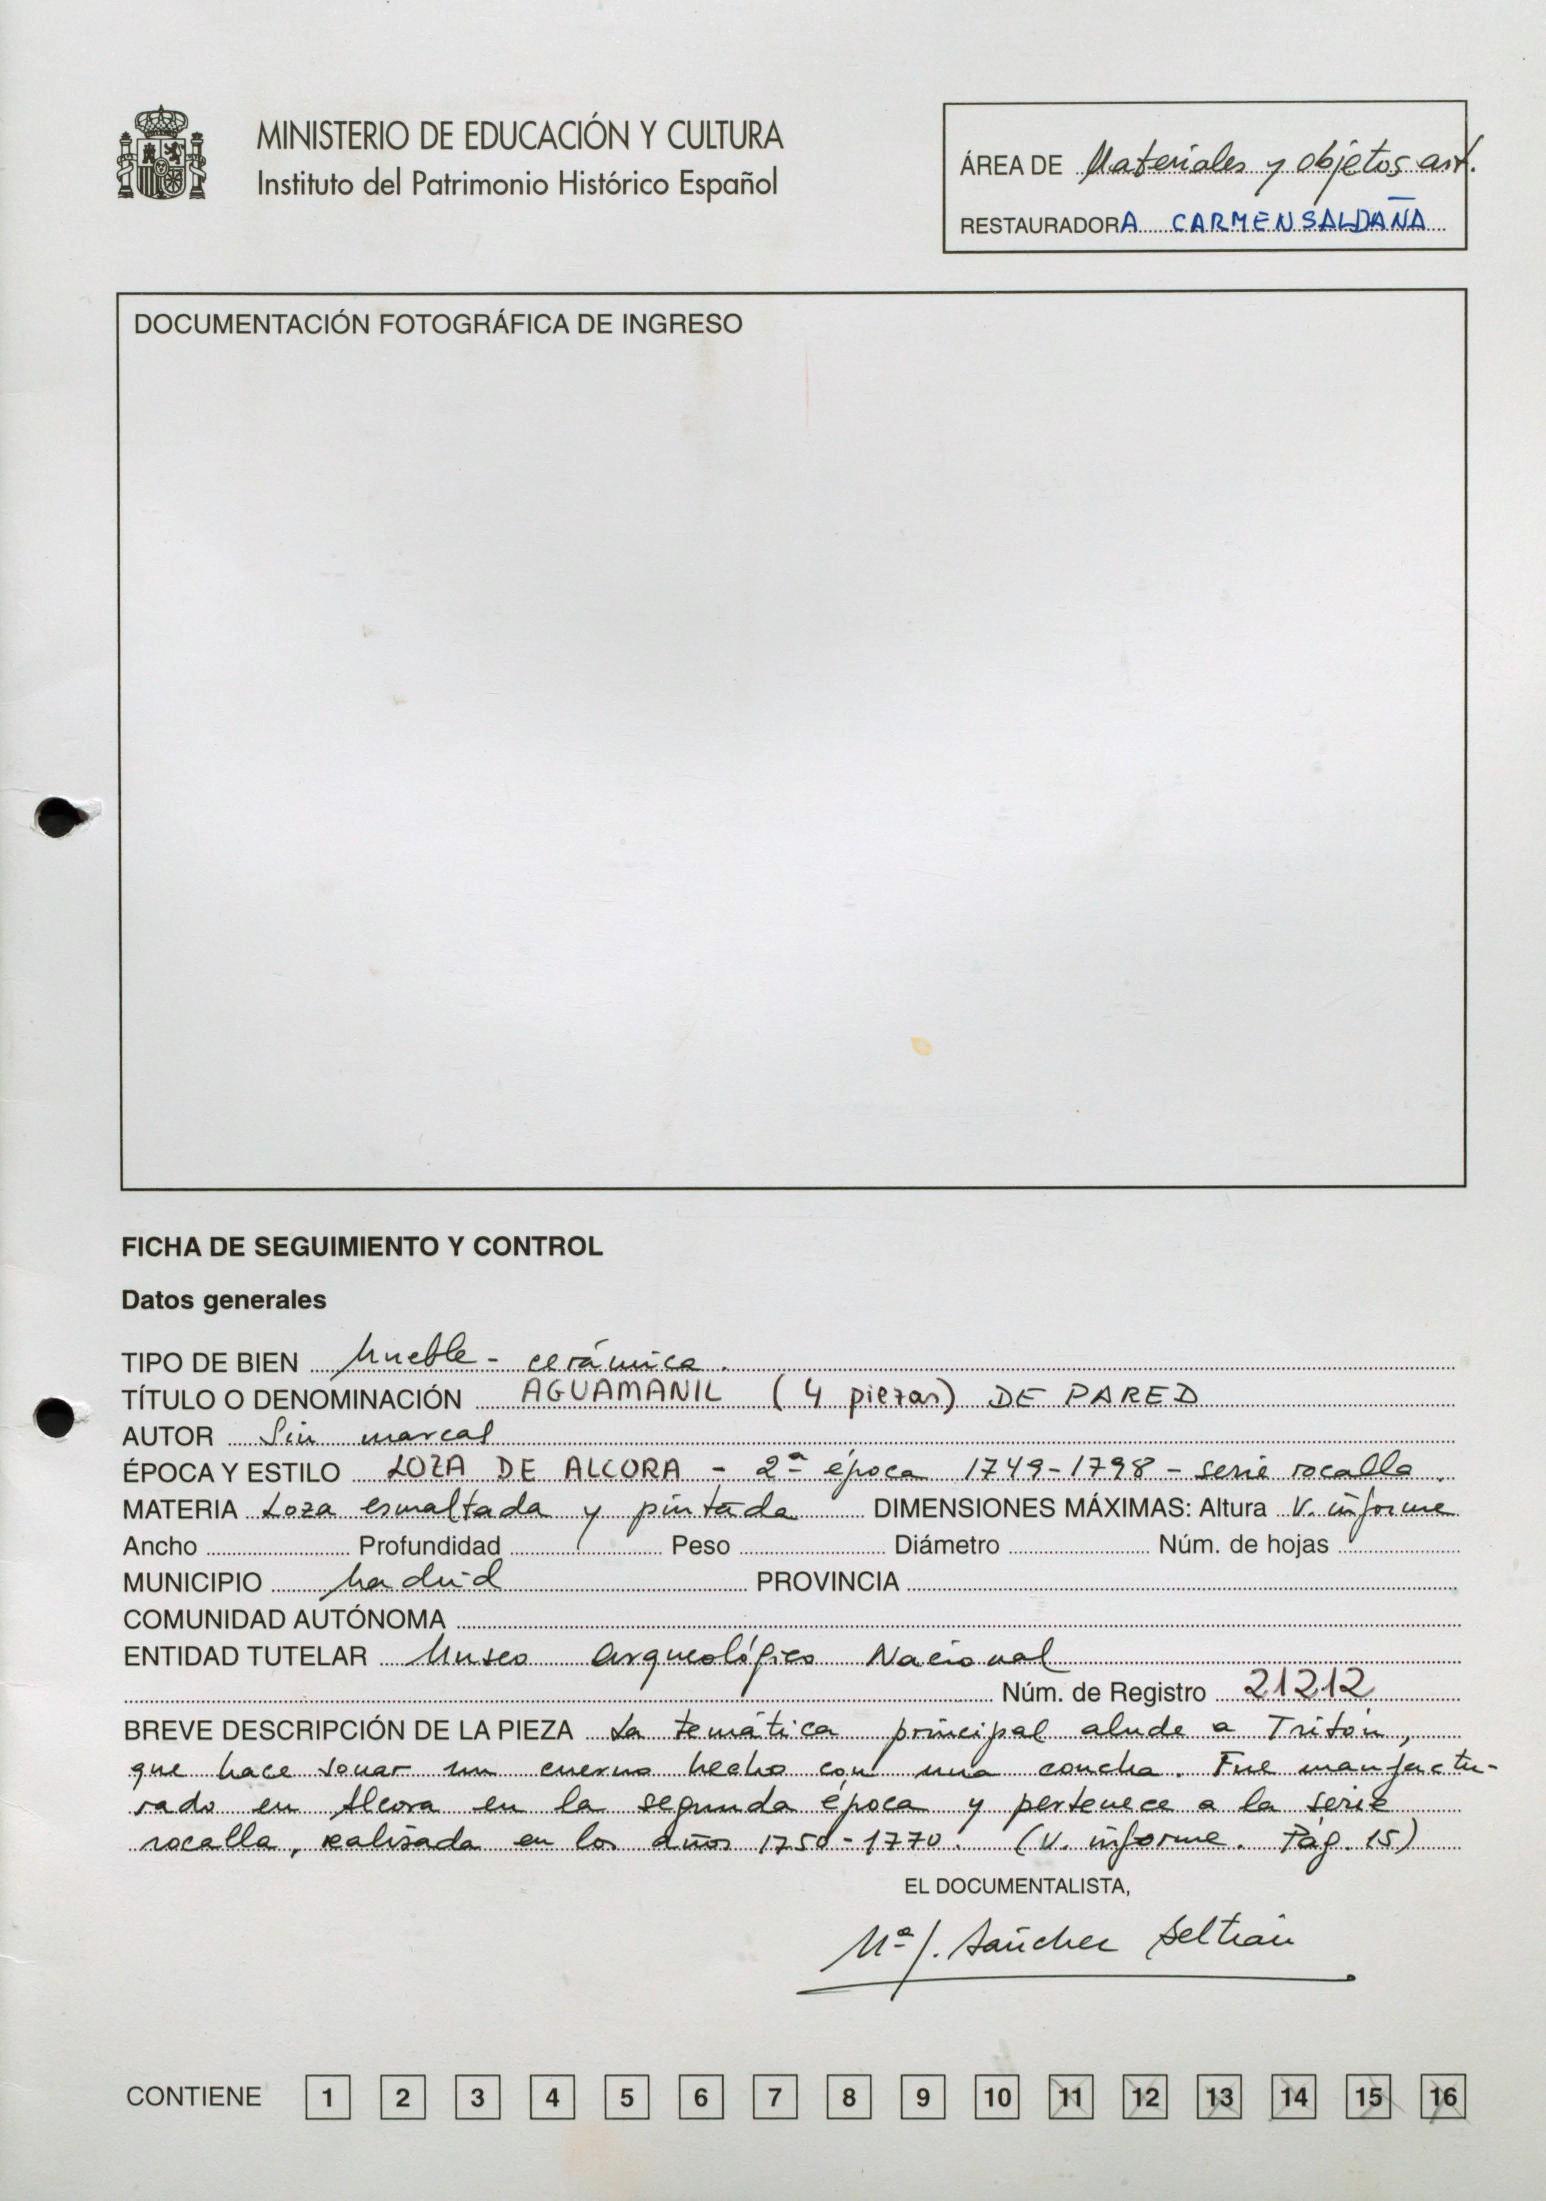 MINISTERIO DE EDUCACIÓN Y CULTURA
Instituto del Patrimonio Histórico Español
ÁREA DE Materiales y objetos art.
RESTAURADORA CARMEN SALDAÑA
DOCUMENTACIÓN FOTOGRÁFICA DE INGRESO
FICHA DE SEGUIMIENTO Y CONTROL
Datos generales
TIPO DE BIEN Mueble - cerámica.
TÍTULO O DENOMINACIÓN AGUAMANIL (4 piezas) DE PARED
AUTOR Sin marcas
ÉPOCA Y ESTILO LOZA DE ALCORA - 2ª época 1749-1798 - serie rocalla.
MATERIA Loza esmaltada y pintada DIMENSIONES MÁXIMAS: Altura V. informe
Ancho Profundidad Peso Diámetro Núm. de hojas
MUNICIPIO Madrid PROVINCIA
COMUNIDAD AUTÓNOMA
ENTIDAD TUTELAR Museo Arqueológico Nacional
Núm. de Registro 21212
BREVE DESCRIPCIÓN DE LA PIEZA La temática principal alude a Tritón,
que hace sonar un cuerno hecho con una concha. Fue manufactu-
rado en Alcora en la segunda época y pertenece a la serie
rocalla, realizada en los años 1750-1770. (V. informe. Pág. 15)
EL DOCUMENTALISTA,
Mª J. Sánchez Beltrán
CONTIENE 1 2 3 4 5 6 7 8 9 10 11 12 13 14 15 16